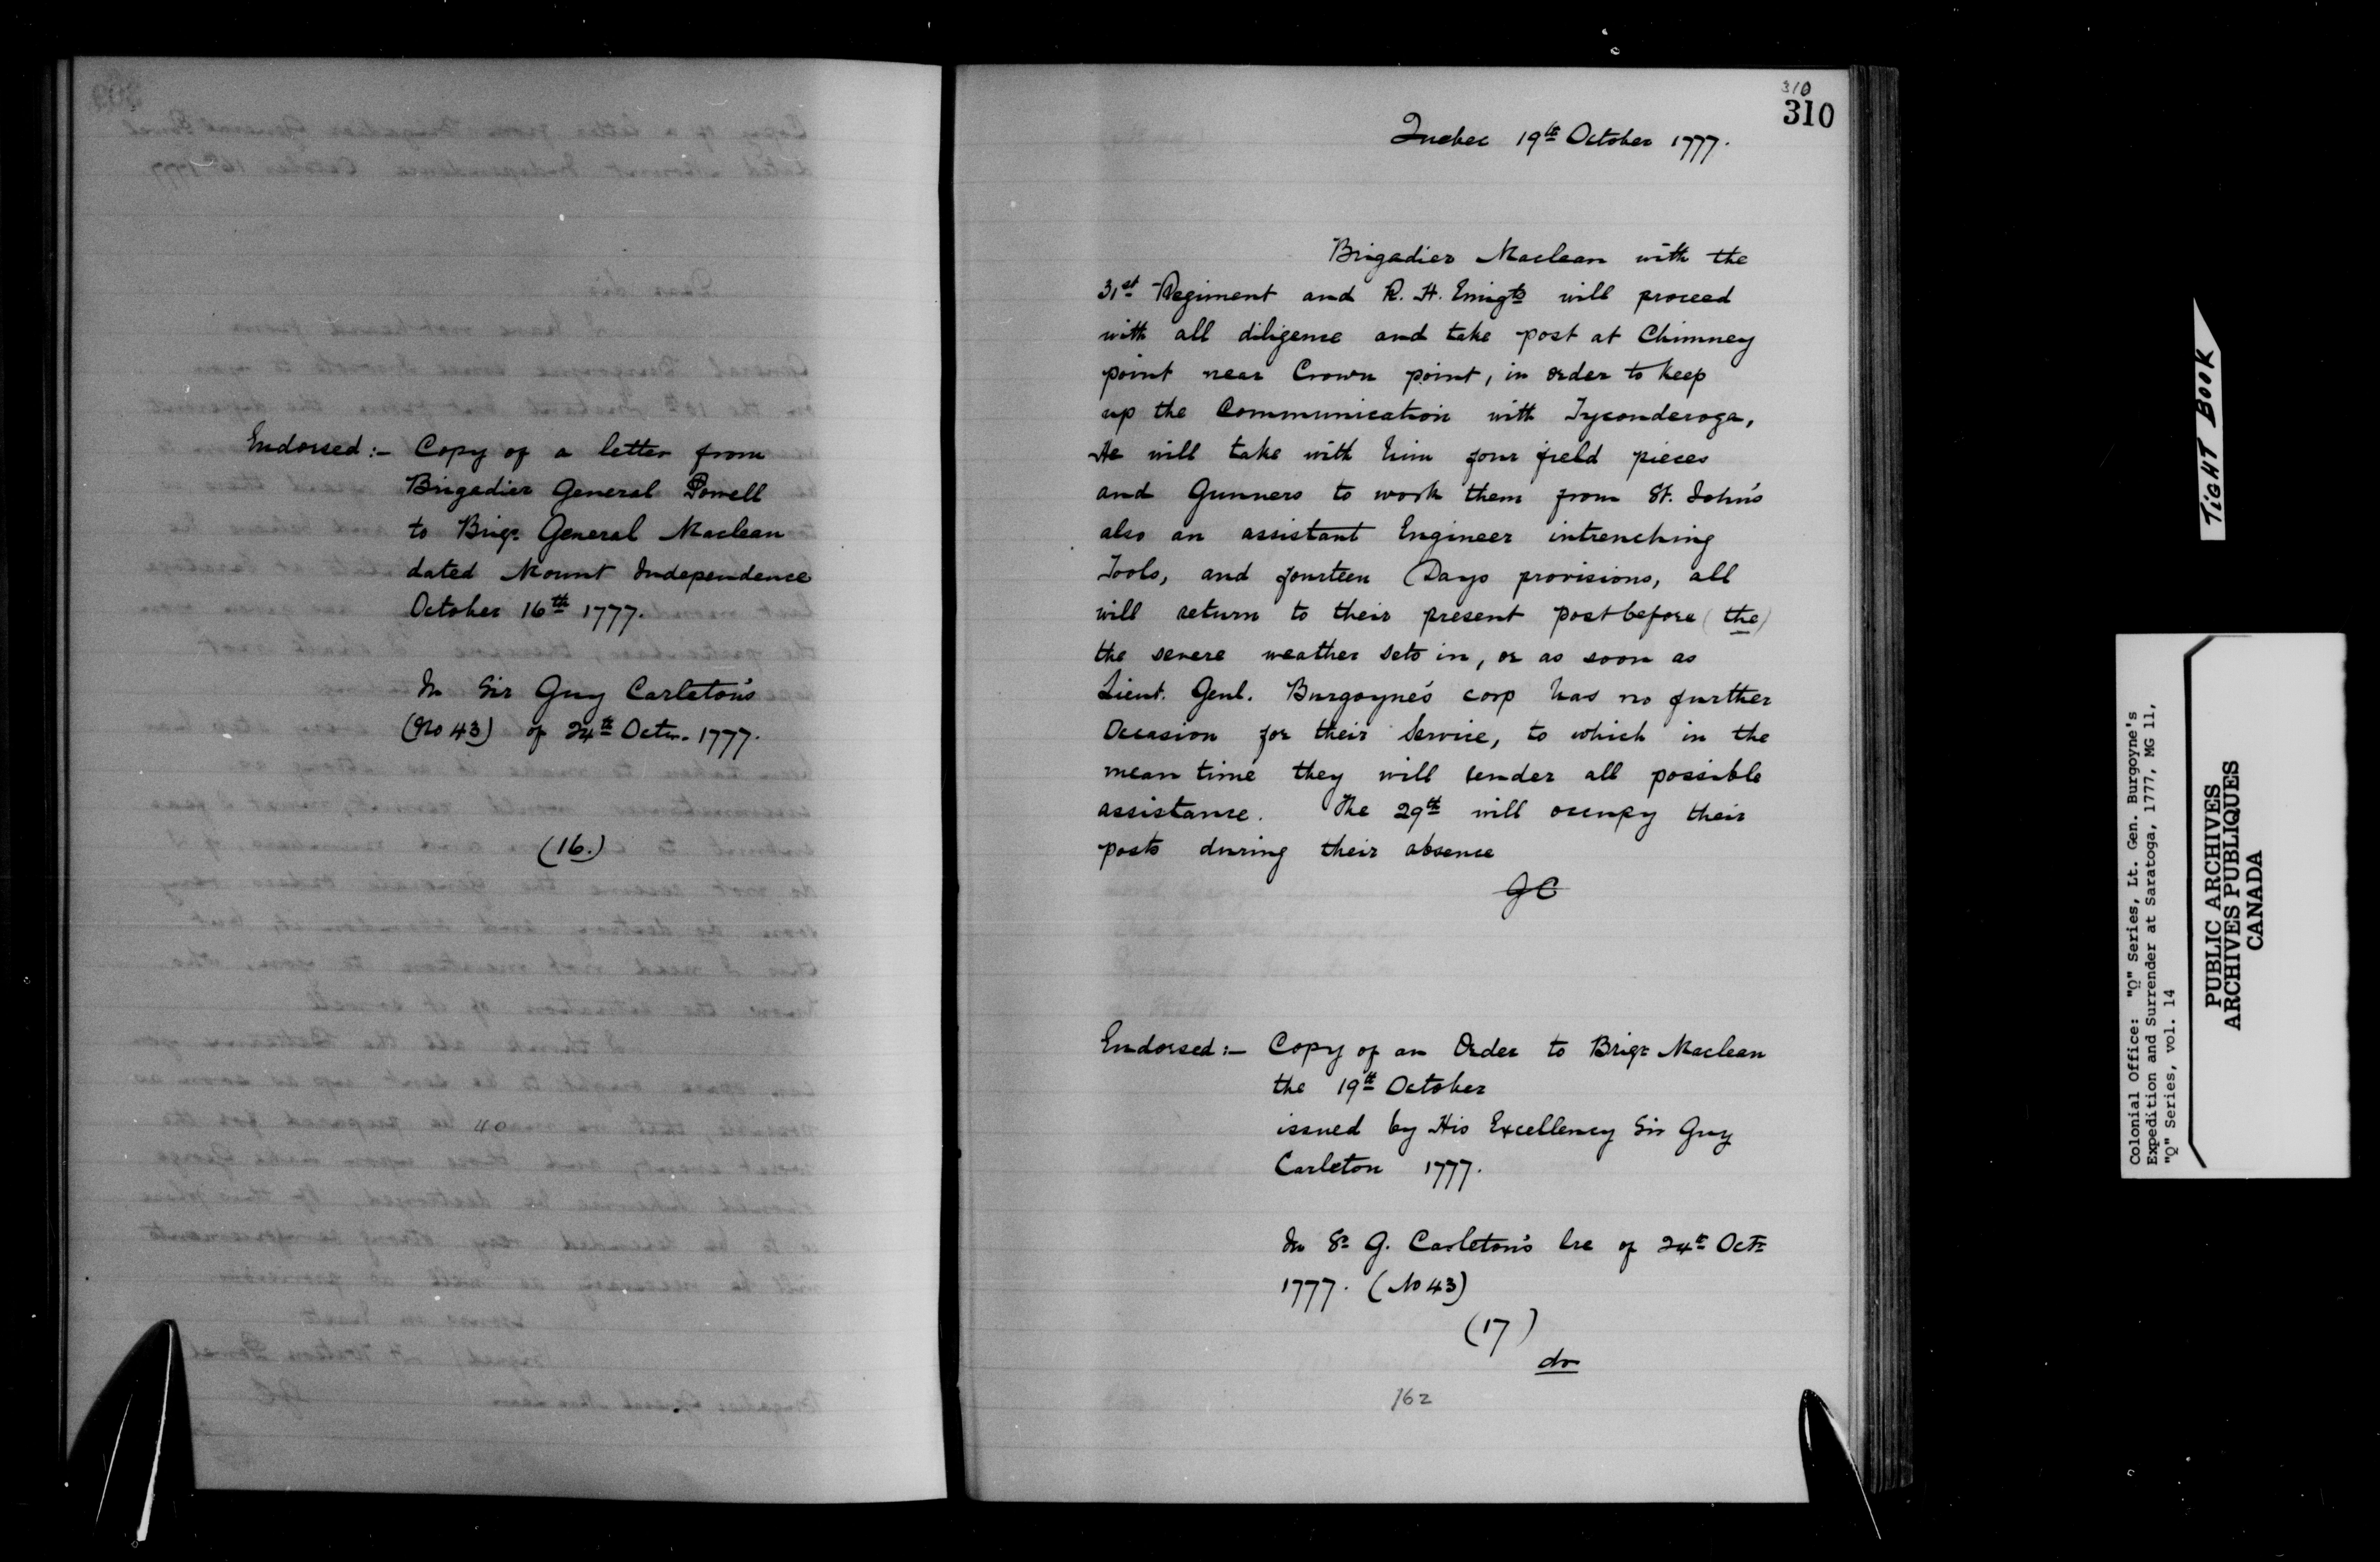 Endorsed :- Copy of a letter from
Brigadier General Powell
to Brigr. General Maclean
dated Mount Independence
October 16th 1777.
In Sir Guy Carleton's
(No 43) of 24th Octr. 1777.
(16.)
40
310
310
Quebec 19th October 1777.
Brigadier Maclean with the
31st Regiment and R. H. Emigts will proceed
with all diligence and take post at Chimney
point near Crown point, in order to keep
up the Communication with Tyconderoga,
He will take with him four field pieces
and Gunners to work them from St. John's
also an assistant Engineer intrenching
Tools, and fourteen Days provisions, all
will return to their present post before (the)
the severe weather sets in, or as soon as
Lieut. Genl. Burgoyne's corp has no further
Occasion for their Service, to which in the
mean time they will render all possible
assistance. The 29th will occupy their
posts during their absence
GC
Endorsed :- Copy of an Order to Brigr Maclean
the 19th October
issued by His Excellency Sir Guy
Carleton 1777.
In Sr G. Carleton's lre of 24th Octr
1777. (No 43)
(17)
do
162
TIGHT BOOK
Colonial Office: "Q" Series, Lt. Gen. Burgoyne's
Expedition and Surrender at Saratoga, 1777, MG 11,
"Q" Series, vol. 14
PUBLIC ARCHIVES
ARCHIVES PUBLIQUES
CANADA